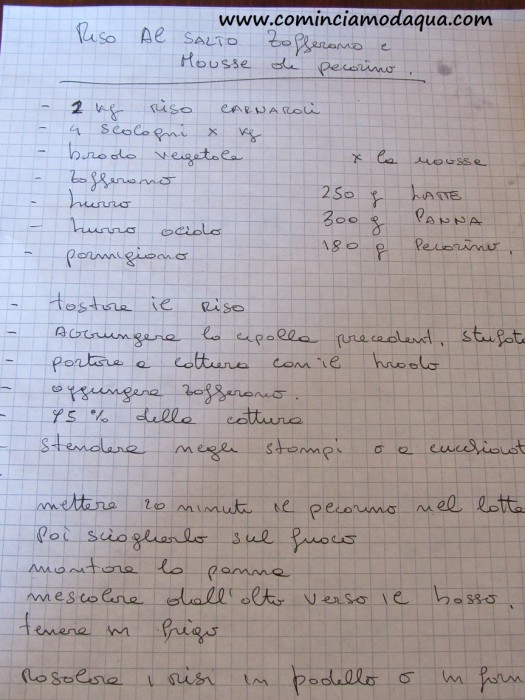 www.cominciamodaqua.com
Riso Al SALTO Zafferano e
Mousse di pecorino.
- 2 kg RISO CARNAROLI
- 4 scalogni x kg
- brodo vegetale
x la mousse
- zafferano
250 g LATTE
- burro
300 g PANNA
- burro acido
180 g Pecorino.
- parmigiano
- tostare il Riso
- Aggiungere la cipolla precedent. stufata
- portare a cottura con il brodo
- aggiungere zafferano.
- 75 % della cottura
- stendere negli stampi o a cucchiaiat
mettere 20 minuti il pecorino nel latte
Poi scioglierlo sul fuoco
montare la panna
mescolare dall'alto verso il basso.
tenere in frigo
Rosolare i risi in padella o in forn